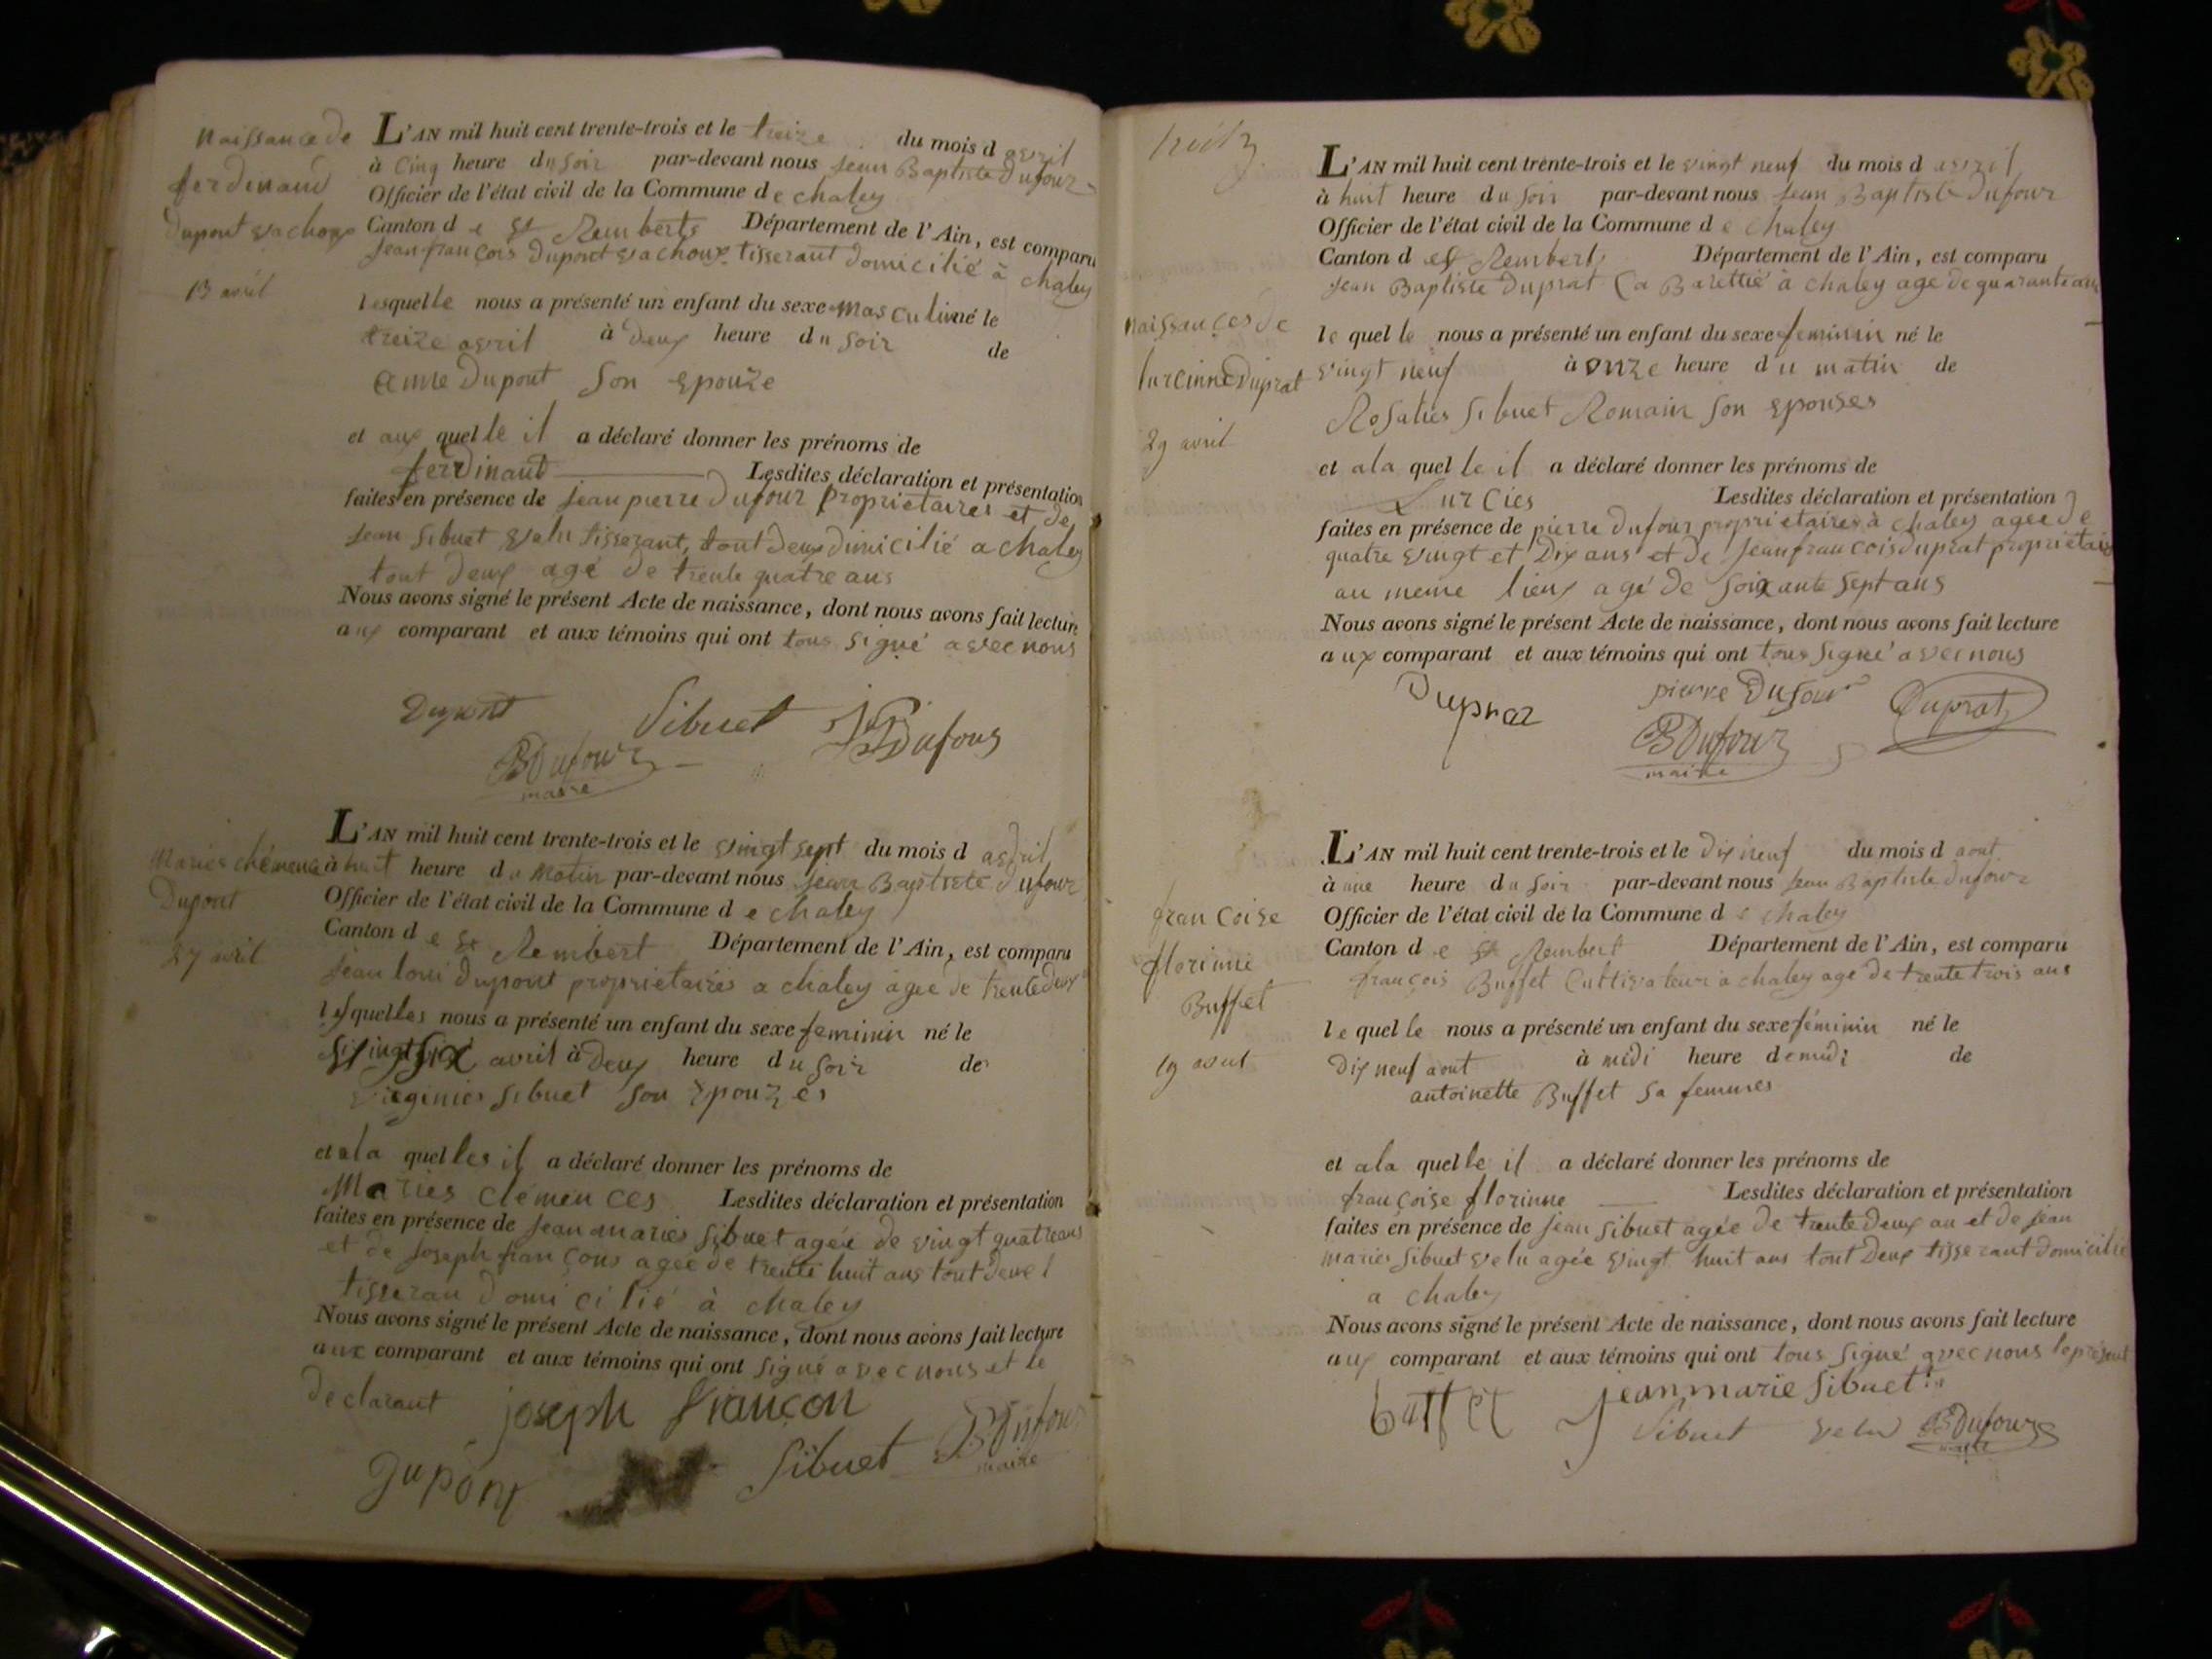 Naissance de
ferdinand
Dupont vachoux
13 avril
L'AN mil huit cent trente-trois et le treize du mois d avril
à cinq heure du soir par-devant nous jean Baptiste Dufour
Officier de l'état civil de la Commune de chaley
Canton de St Rembert Département de l'Ain, est comparu
jean françois Dupont vachoux tisserant domicilié à chaley
lesquelle nous a présenté un enfant du sexe masculin né le
treize avril à deux heure du soir de
anne Dupont son epouze
et aux quelle il a déclaré donner les prénoms de
ferdinant Lesdites déclaration et présentation
faites en présence de jean pierre Dufour propriétaires et de
jean Sibuet velu tisserant, tout deux dimicilié a chaley
tout deux agé de trente quatre ans
Nous avons signé le présent Acte de naissance, dont nous avons fait lecture
aux comparant et aux témoins qui ont tous signé avec nous
Dupont Sibuet JP Dufour
BDufour
maire
Maries clémence
Dupont
27 avril
L'AN mil huit cent trente-trois et le vingt sept du mois d avril
à huit heure du matin par-devant nous jean Baptiste Dufour
Officier de l'état civil de la Commune de chaley
Canton de St Rembert Département de l'Ain, est comparu
jean loui Dupont proprietaires a chaley agée de trente deux
lesquelles nous a présenté un enfant du sexe feminin né le
vingt six avril à deux heure du soir de
virginies Sibuet son epouzes
et ala quelles il a déclaré donner les prénoms de
Maries clémences Lesdites déclaration et présentation
faites en présence de jean maries Sibuet agée de vingt quatre ans
et de joseph françons agée de trente huit ans tout deux
tisseran domicilié à chaley
Nous avons signé le présent Acte de naissance, dont nous avons fait lecture
aux comparant et aux témoins qui ont signé avec nous et le
declarant joseph françon
Dupont Sibuet BDufour
maire
L'AN mil huit cent trente-trois et le vingt neuf du mois d avril
à huit heure du soir par-devant nous jean Baptiste Dufour
Officier de l'état civil de la Commune de chaley
Canton de St Rembert Département de l'Ain, est comparu
jean Baptiste Duprat cabarettié à chaley age de quarante ans
naissances de
lurcinne Duprat
29 avril
le quelle nous a présenté un enfant du sexe feminin né le
vingt neuf à onze heure du matin de
Rosalies Sibuet Romain son epouses
et ala quelle il a déclaré donner les prénoms de
Lurcies Lesdites déclaration et présentation
faites en présence de pierre Dufour proprietaires à chaley agee de
quatre vingt et Dix ans et de jean francois duprat proprietaire
au meme lieux agé de soixante sept ans
Nous avons signé le présent Acte de naissance, dont nous avons fait lecture
aux comparant et aux témoins qui ont tous signé avec nous
Dupraz pierre Dufour Duprat
BDufour
maire
francoise
florinne
Buffet
19 aout
L'AN mil huit cent trente-trois et le dix neuf du mois d aout
à une heure du soir par-devant nous jean Baptiste Dufour
Officier de l'état civil de la Commune de chaley
Canton de St Rembert Département de l'Ain, est comparu
françois Buffet Cultivateur a chaley age de trente trois ans
le quelle nous a présenté un enfant du sexe féminin né le
dix neuf aout à midi heure de midi de
antoinette Buffet sa femmes
et ala quelle il a déclaré donner les prénoms de
françoise florinne Lesdites déclaration et présentation
faites en présence de jean Sibuet agée de trente deux an et de jean
maries Sibuet velu agée vingt huit ans tout deux tisserant domicilié
a chaley
Nous avons signé le présent Acte de naissance, dont nous avons fait lecture
aux comparant et aux témoins qui ont tous signé avec nous le présent
buffet jean marie Sibuet
Sibuet velu BDufour
maire